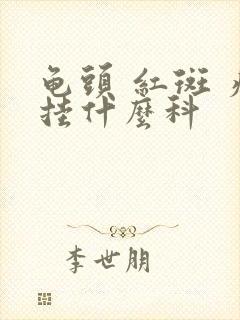 龟頭 紅斑
挂什麼科
李世朋